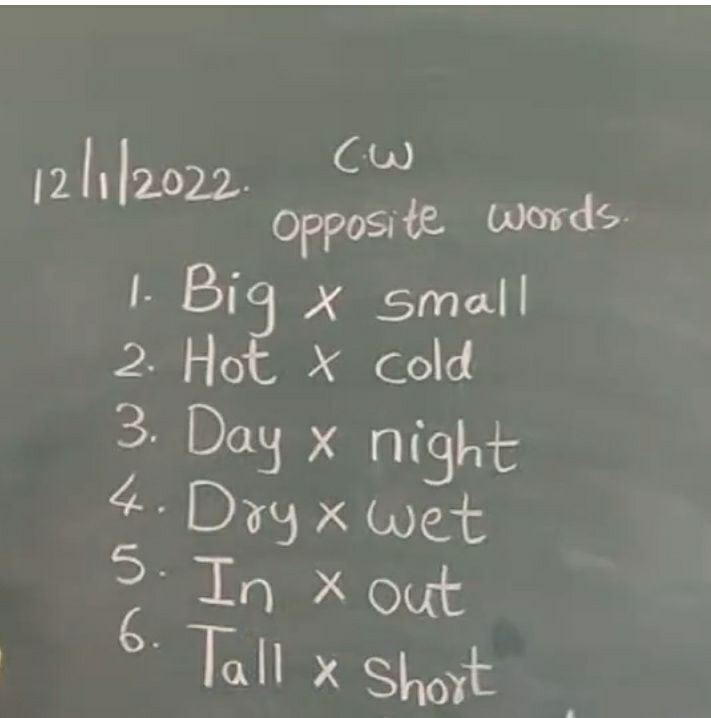 C.W
12/1/2022.
opposite words.
1. Big x small
2. Hot x cold
3. Day x night
4. Dry x wet
5. In x out
6. Tall x short